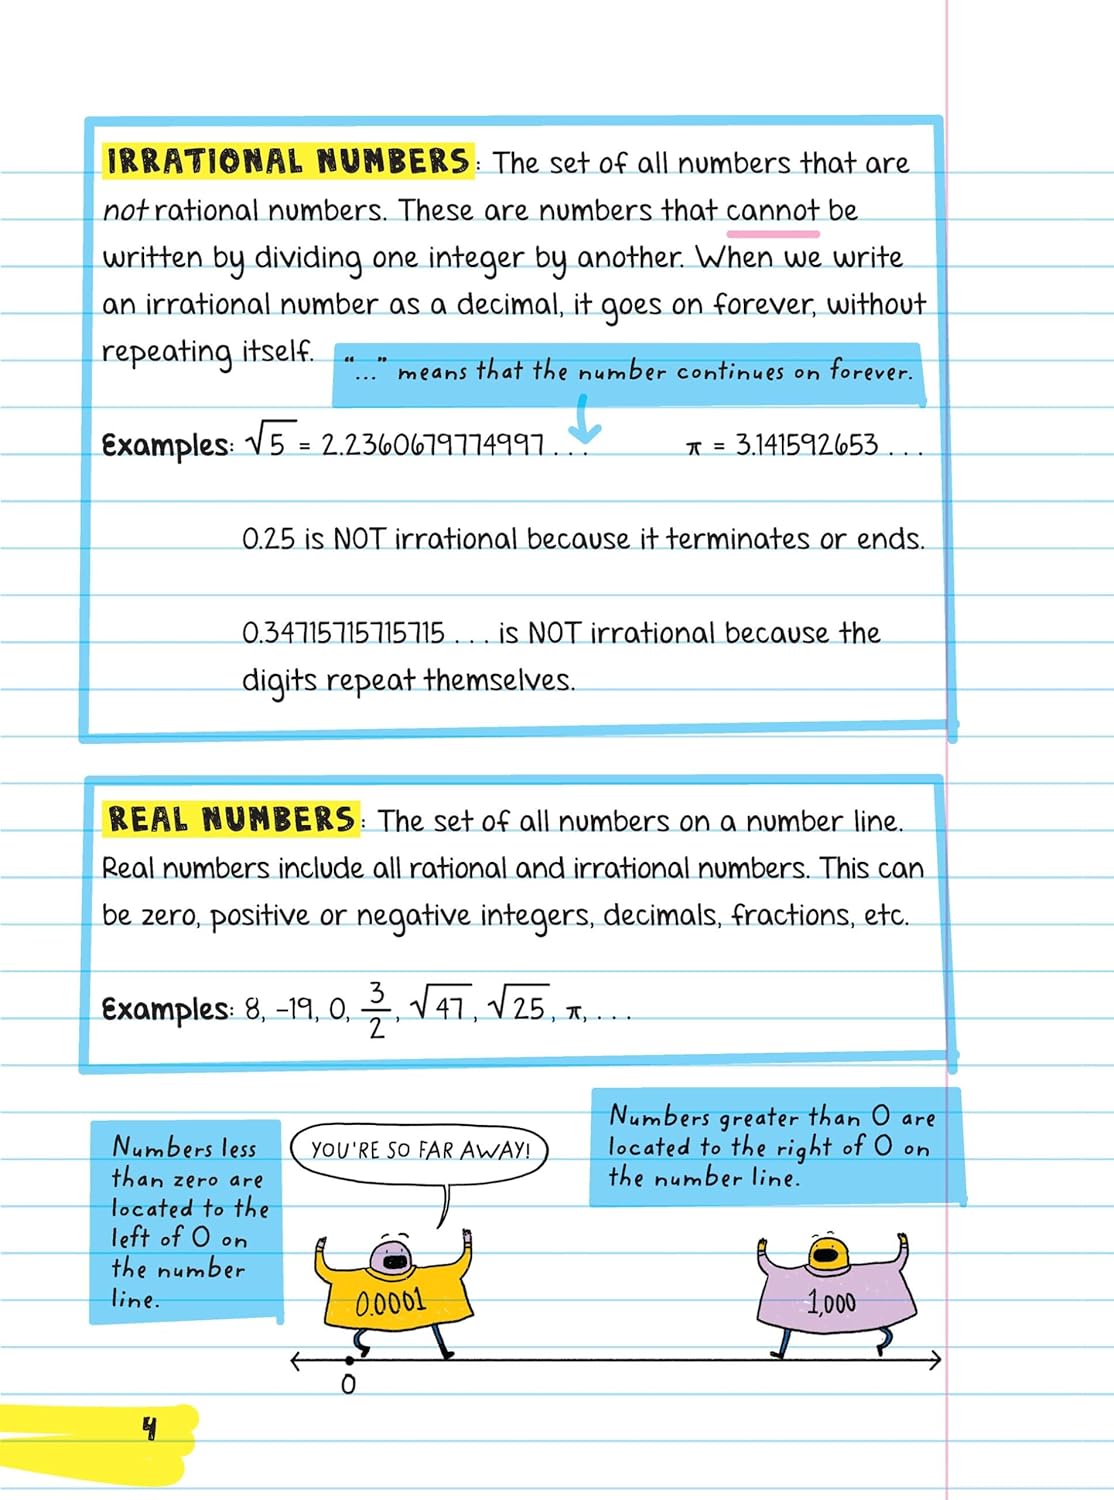 IRRATIONAL NUMBERS: The set of all numbers that are
not rational numbers. These are numbers that cannot be
written by dividing one integer by another. When we write
an irrational number as a decimal, it goes on forever, without
repeating itself.
“...” means that the number continues on forever.
Examples: √5 = 2.2360679774997 . . .
π = 3.141592653 . . .
0.25 is NOT irrational because it terminates or ends.
0.34715715715715 . . . is NOT irrational because the
digits repeat themselves.
REAL NUMBERS: The set of all numbers on a number line.
Real numbers include all rational and irrational numbers. This can
be zero, positive or negative integers, decimals, fractions, etc.
Examples: 8, –19, 0, 3/2, √47, √25, π, . . .
Numbers less
than zero are
located to the
left of 0 on
the number
line.
YOU'RE SO FAR AWAY!
Numbers greater than 0 are
located to the right of 0 on
the number line.
0.0001
1,000
0
4